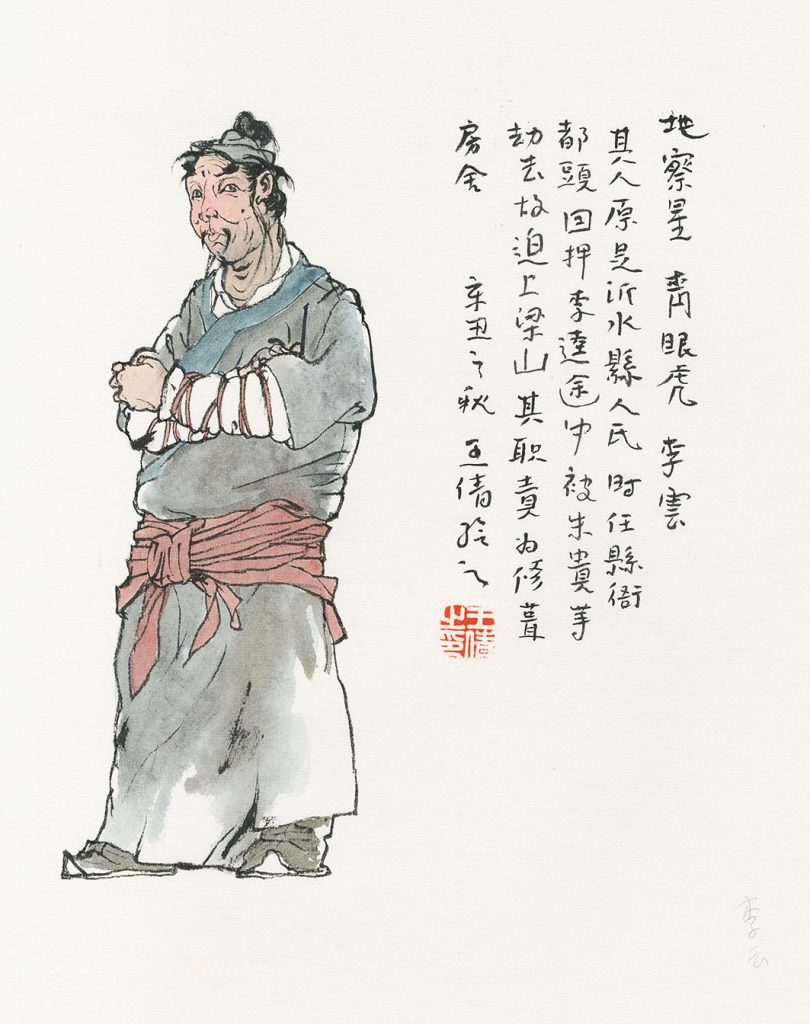 地察星 青眼虎 李雲
其人原是沂水縣人氏时任縣衙
都頭因押李逵途中被朱貴等
劫去故迫上梁山其职責为修葺
房舍 辛丑之秋 王倩绘之
王倩之印
李云